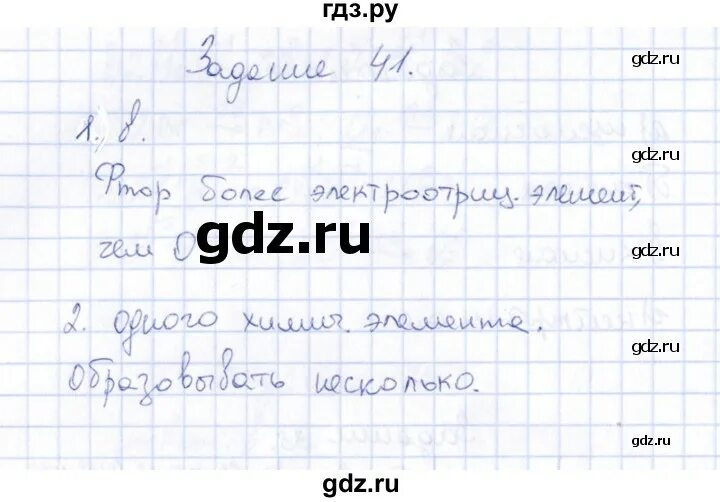 гдз.ру
gdz.ru
Задание 41.
1. в.
gdz.ru
Фтор более электроотриц. элемент,
gdz.ru
чем О
gdz.ru
gdz.ru
2. одного химич. элемента.
gdz.ru
Образовывать несколько.
gdz.ru
gdz.ru